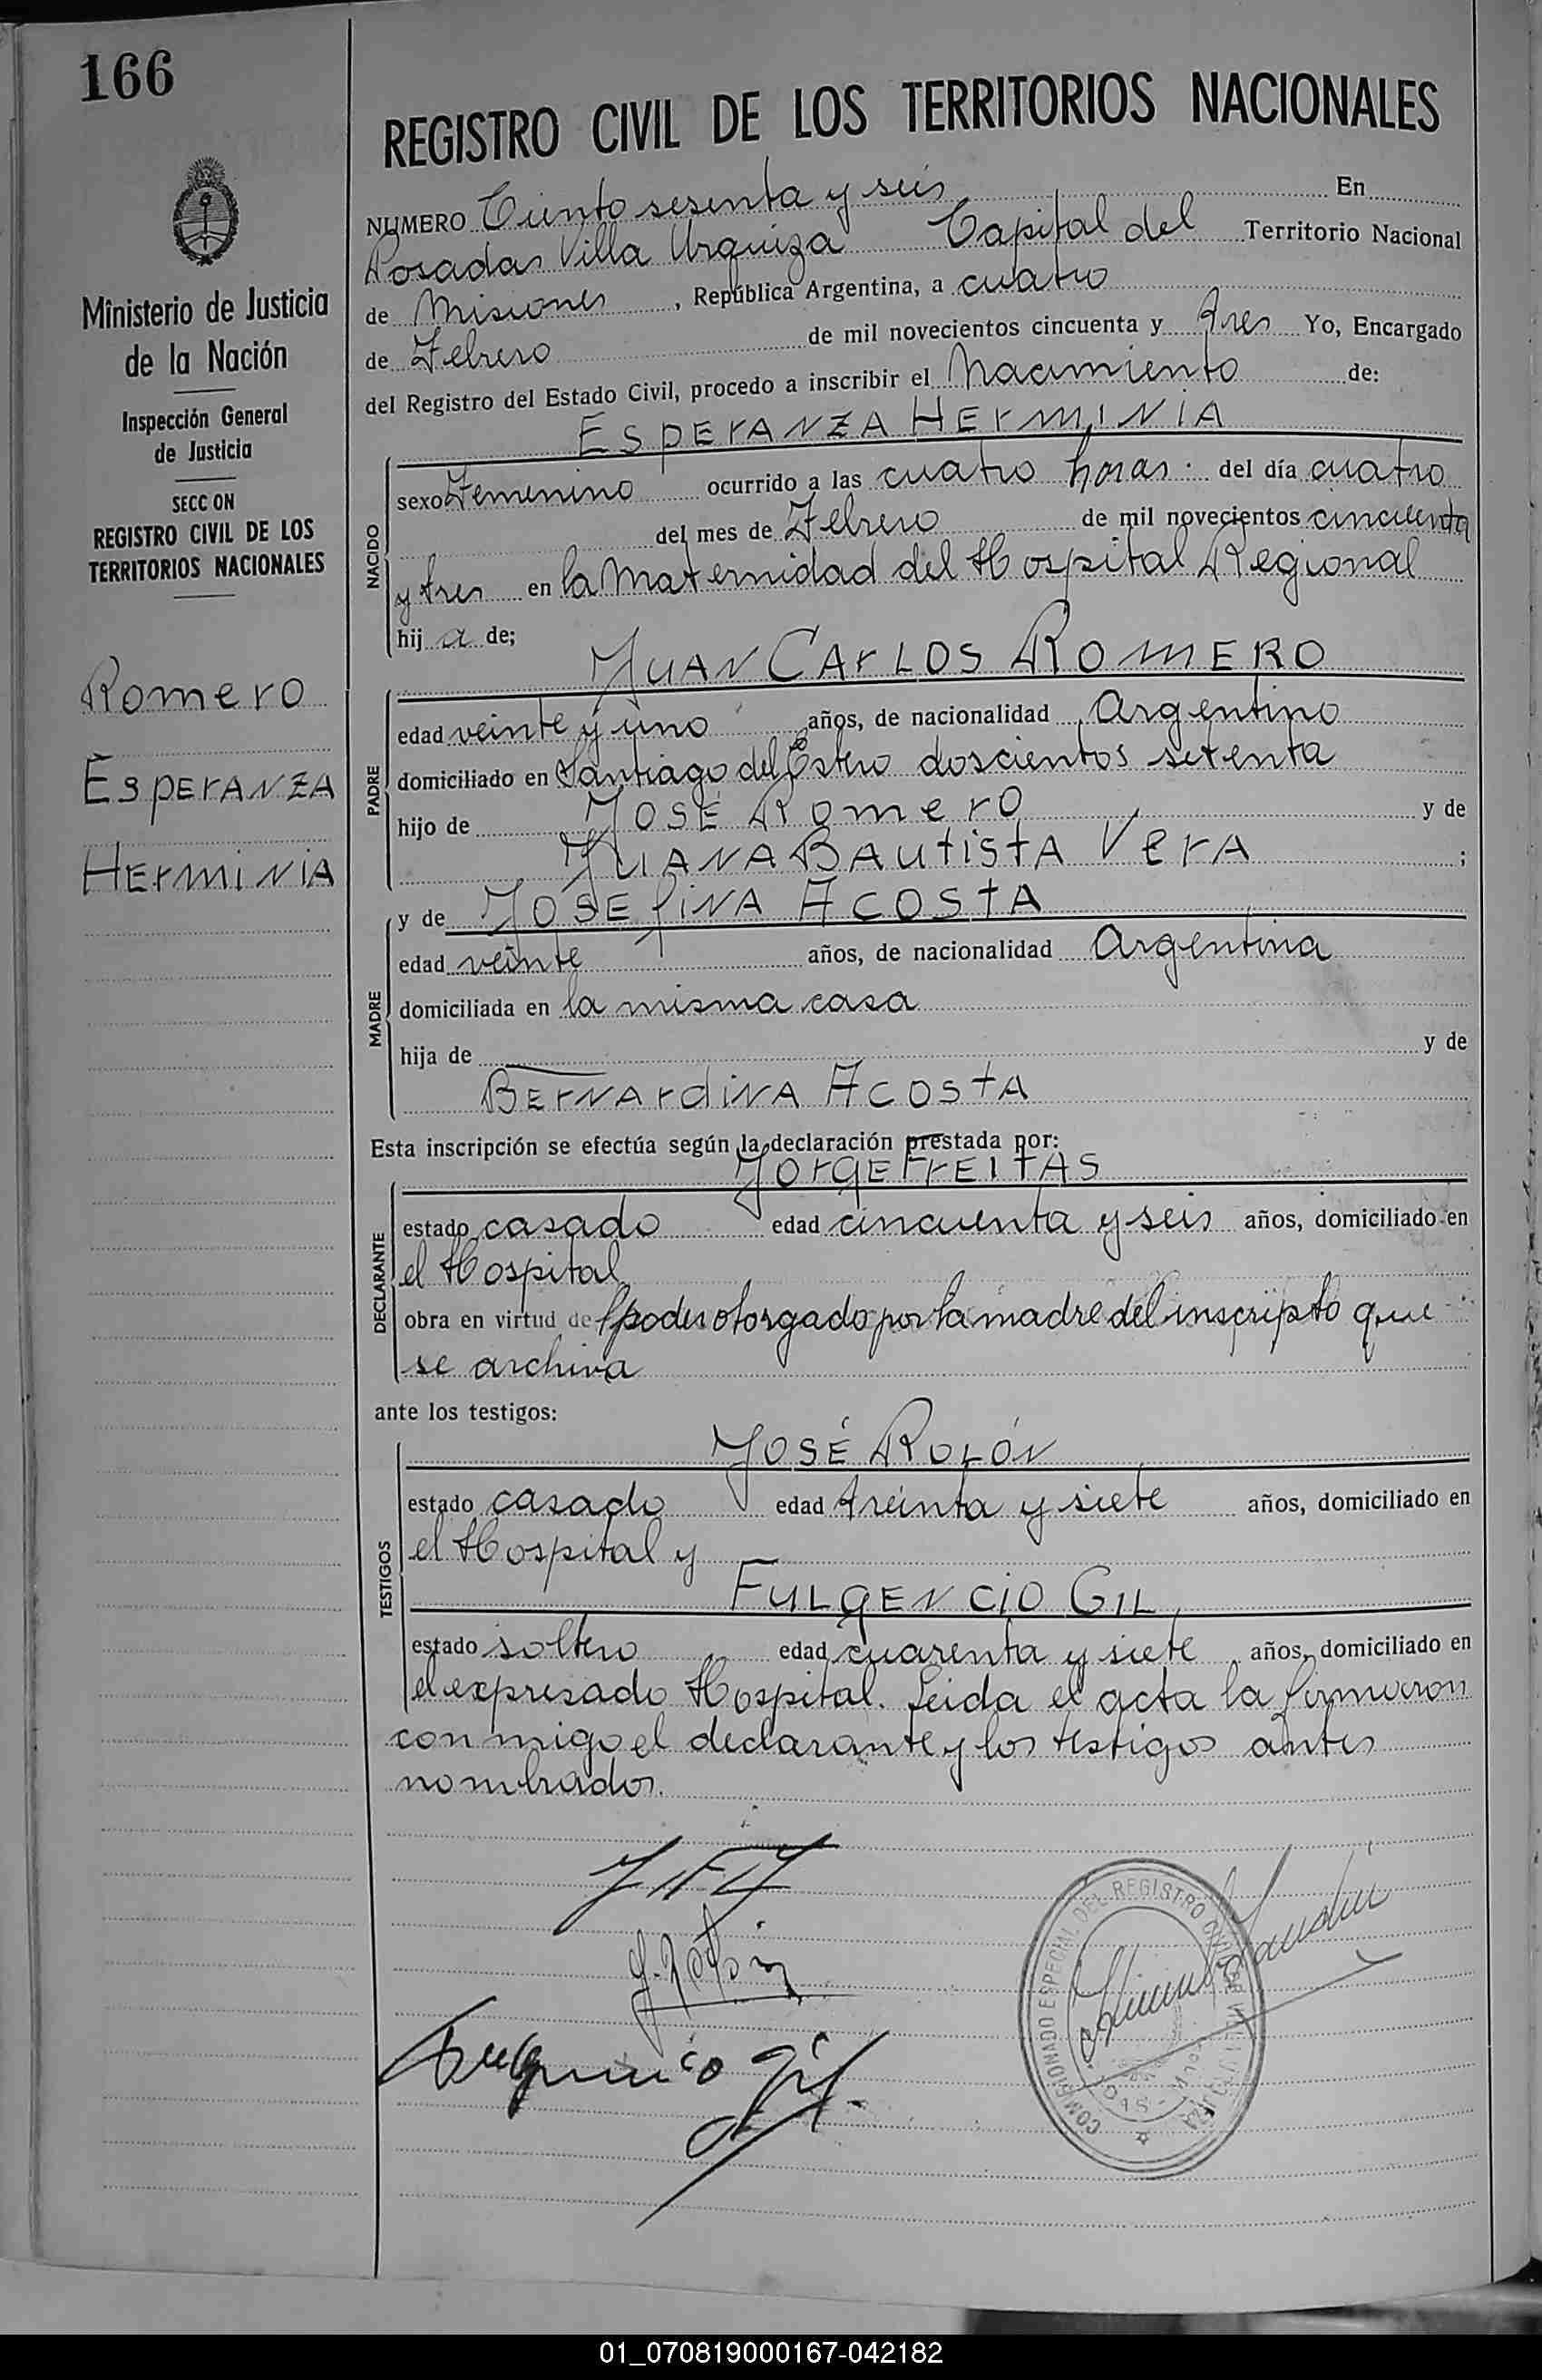 166
Ministerio de Justicia
de la Nación
Inspección General
de Justicia
SECC ON
REGISTRO CIVIL DE LOS
TERRITORIOS NACIONALES
Romero
Esperanza
Herminia
REGISTRO CIVIL DE LOS TERRITORIOS NACIONALES
NUMERO Ciento sesenta y seis En
Posadas Villa Urquiza Capital del Territorio Nacional
de Misiones, República Argentina, a cuatro
de Febrero de mil novecientos cincuenta y tres Yo, Encargado
del Registro del Estado Civil, procedo a inscribir el Nacimiento de:
Esperanza Herminia
NACIDO
sexo Femenino ocurrido a las cuatro horas. del día cuatro
del mes de Febrero de mil novecientos cincuenta
y tres en la Maternidad del Hospital Regional
hij a de;
Juan Carlos Romero
PADRE
edad veinte y uno años, de nacionalidad Argentino
domiciliado en Santiago del Estero doscientos setenta
hijo de José Romero y de
Juana Bautista Vera ;
y de Josefina Acosta
MADRE
edad veinte años, de nacionalidad Argentina
domiciliada en la misma casa
hija de y de
Bernardina Acosta
Esta inscripción se efectúa según la declaración prestada por:
Jorge Freitas
DECLARANTE
estado casado edad cincuenta y seis años, domiciliado en
el Hospital
obra en virtud del poder otorgado por la madre del inscripto que
se archiva
ante los testigos:
José Rolón
TESTIGOS
estado casado edad treinta y siete años, domiciliado en
el Hospital y
Fulgencio Gil
estado soltero edad cuarenta y siete años, domiciliado en
el expresado Hospital. Leida el acta la firmaron
conmigo el declarante y los testigos antes
nombrados.
J. Rolón
Fulgencio Gil
COMISIONADO ESPECIAL DEL REGISTRO CIVIL
01_070819000167-042182